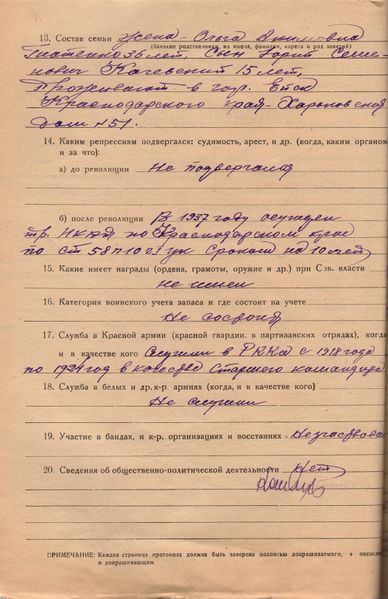 13. Состав семьи жена - Ольга Акимовна
(близкие родственники, их имена, фамилии, адреса и род занятий)
Гнатенко 36 лет, сын Юрий Семе-
нович Качевский 15 лет,
Проживают в гор. Ейск
Краснодарского края - Харьковская
дом №51.
14. Каким репрессиям подвергался: судимость, арест, и др. (когда, каким органом
и за что):
а) до революции Не подвергался
б) после революции В 1937 году осужден
тр. НКВД по Краснодарском крае
по ст 58 п 10 ук сроком на 10 лет
15. Какие имеет награды (ордена, грамоты, оружие и др.) при Сов. власти
не имеет
16. Категория воинского учета запаса и где состоит на учете
Не состоит
17. Служба в Красной армии (красной гвардии. в партизанских отрядах), когда
и в качестве кого Служил в РККА с 1918 года
по 1924 год в качестве старшего командира
18. Служба в белых и др. к-р. армиях (когда, и в качестве кого)
Не служил
19. Участие в бандах, и к-р. организациях и восстаниях Не участвовал
20 Сведения об общественно-политической деятельности Нет
ПРИМЕЧАНИЕ: Каждая страница протокола должна быть заверена подписью допрашиваемого, а
и допрашивающим